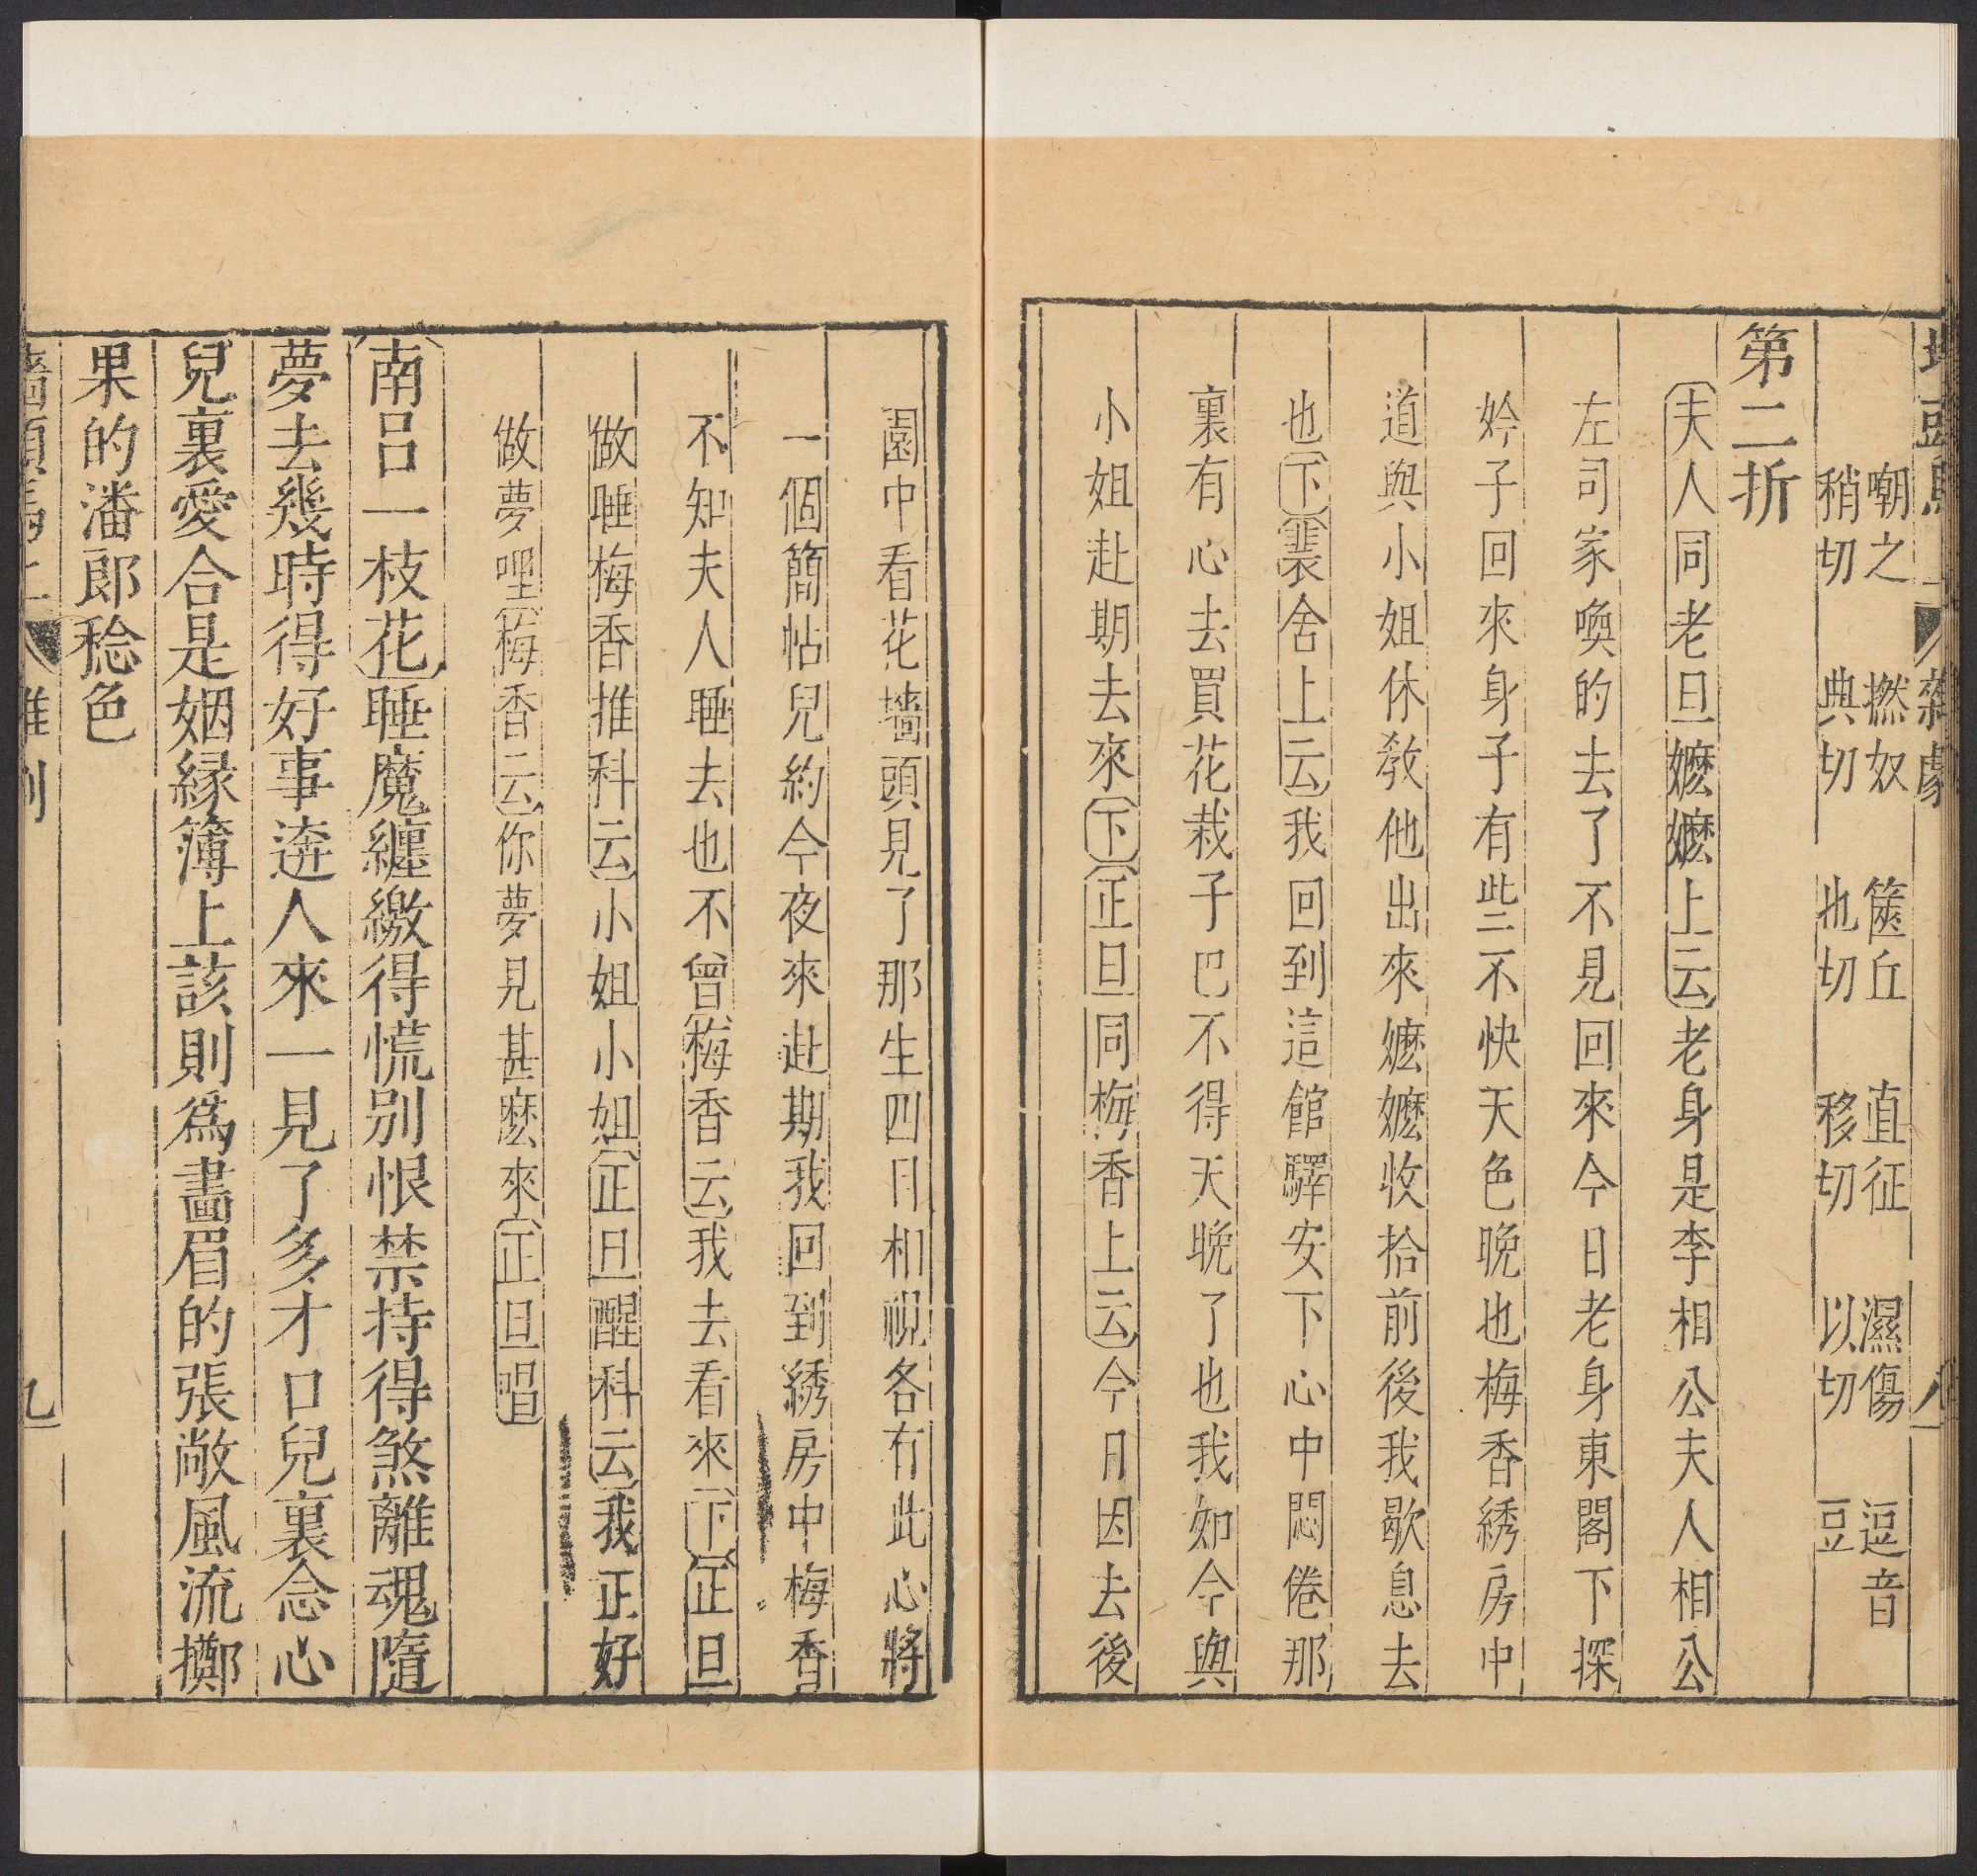 雜劇
嘲之稍切　撚奴典切　篋丘也切　直征移切　濕傷以切　逗音豆
第二折
夫人同老旦嬤嬤上云老身是李相公夫人相公
左司家喚的去了不見回來今日老身東閣下探
妗子回來身子有些不快天色晚也梅香綉房中
道與小姐休教他出來嬤嬤收拾前後我歇息去
也下裴舍上云我回到這館驛安下心中悶倦那
裏有心去買花栽子巴不得天晚了也我如今與
小姐赴期去來下正旦同梅香上云今日因去後
園中看花墻頭見了那生四目相視各有此心將
一個簡帖兒約今夜來赴期我回到綉房中梅香
不知夫人睡去也不曾梅香云我去看來下正旦
做睡梅香推科云小姐小姐正旦醒科云我正好
做夢哩梅香云你夢見甚麽來正旦唱
南吕一枝花睡魔纏繳得慌别恨禁持得煞離魂隨
夢去幾時得好事逩人來一見了多才口兒裏念心
兒裏愛合是姻緣簿上該則爲畫眉的張敞風流擲
果的潘郎稔色